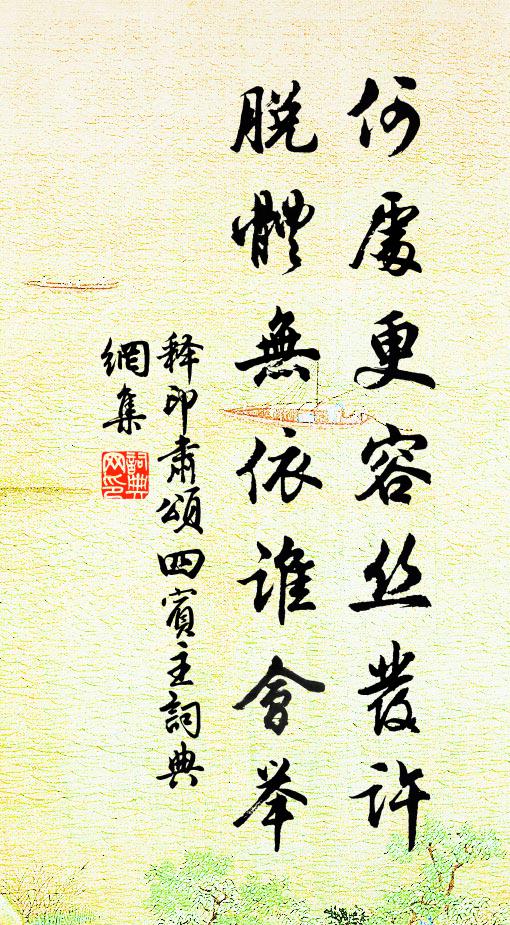 何處更容丝發許
脫體無依誰會举
释印肅頌四賓主詞典
網集
詞典網印